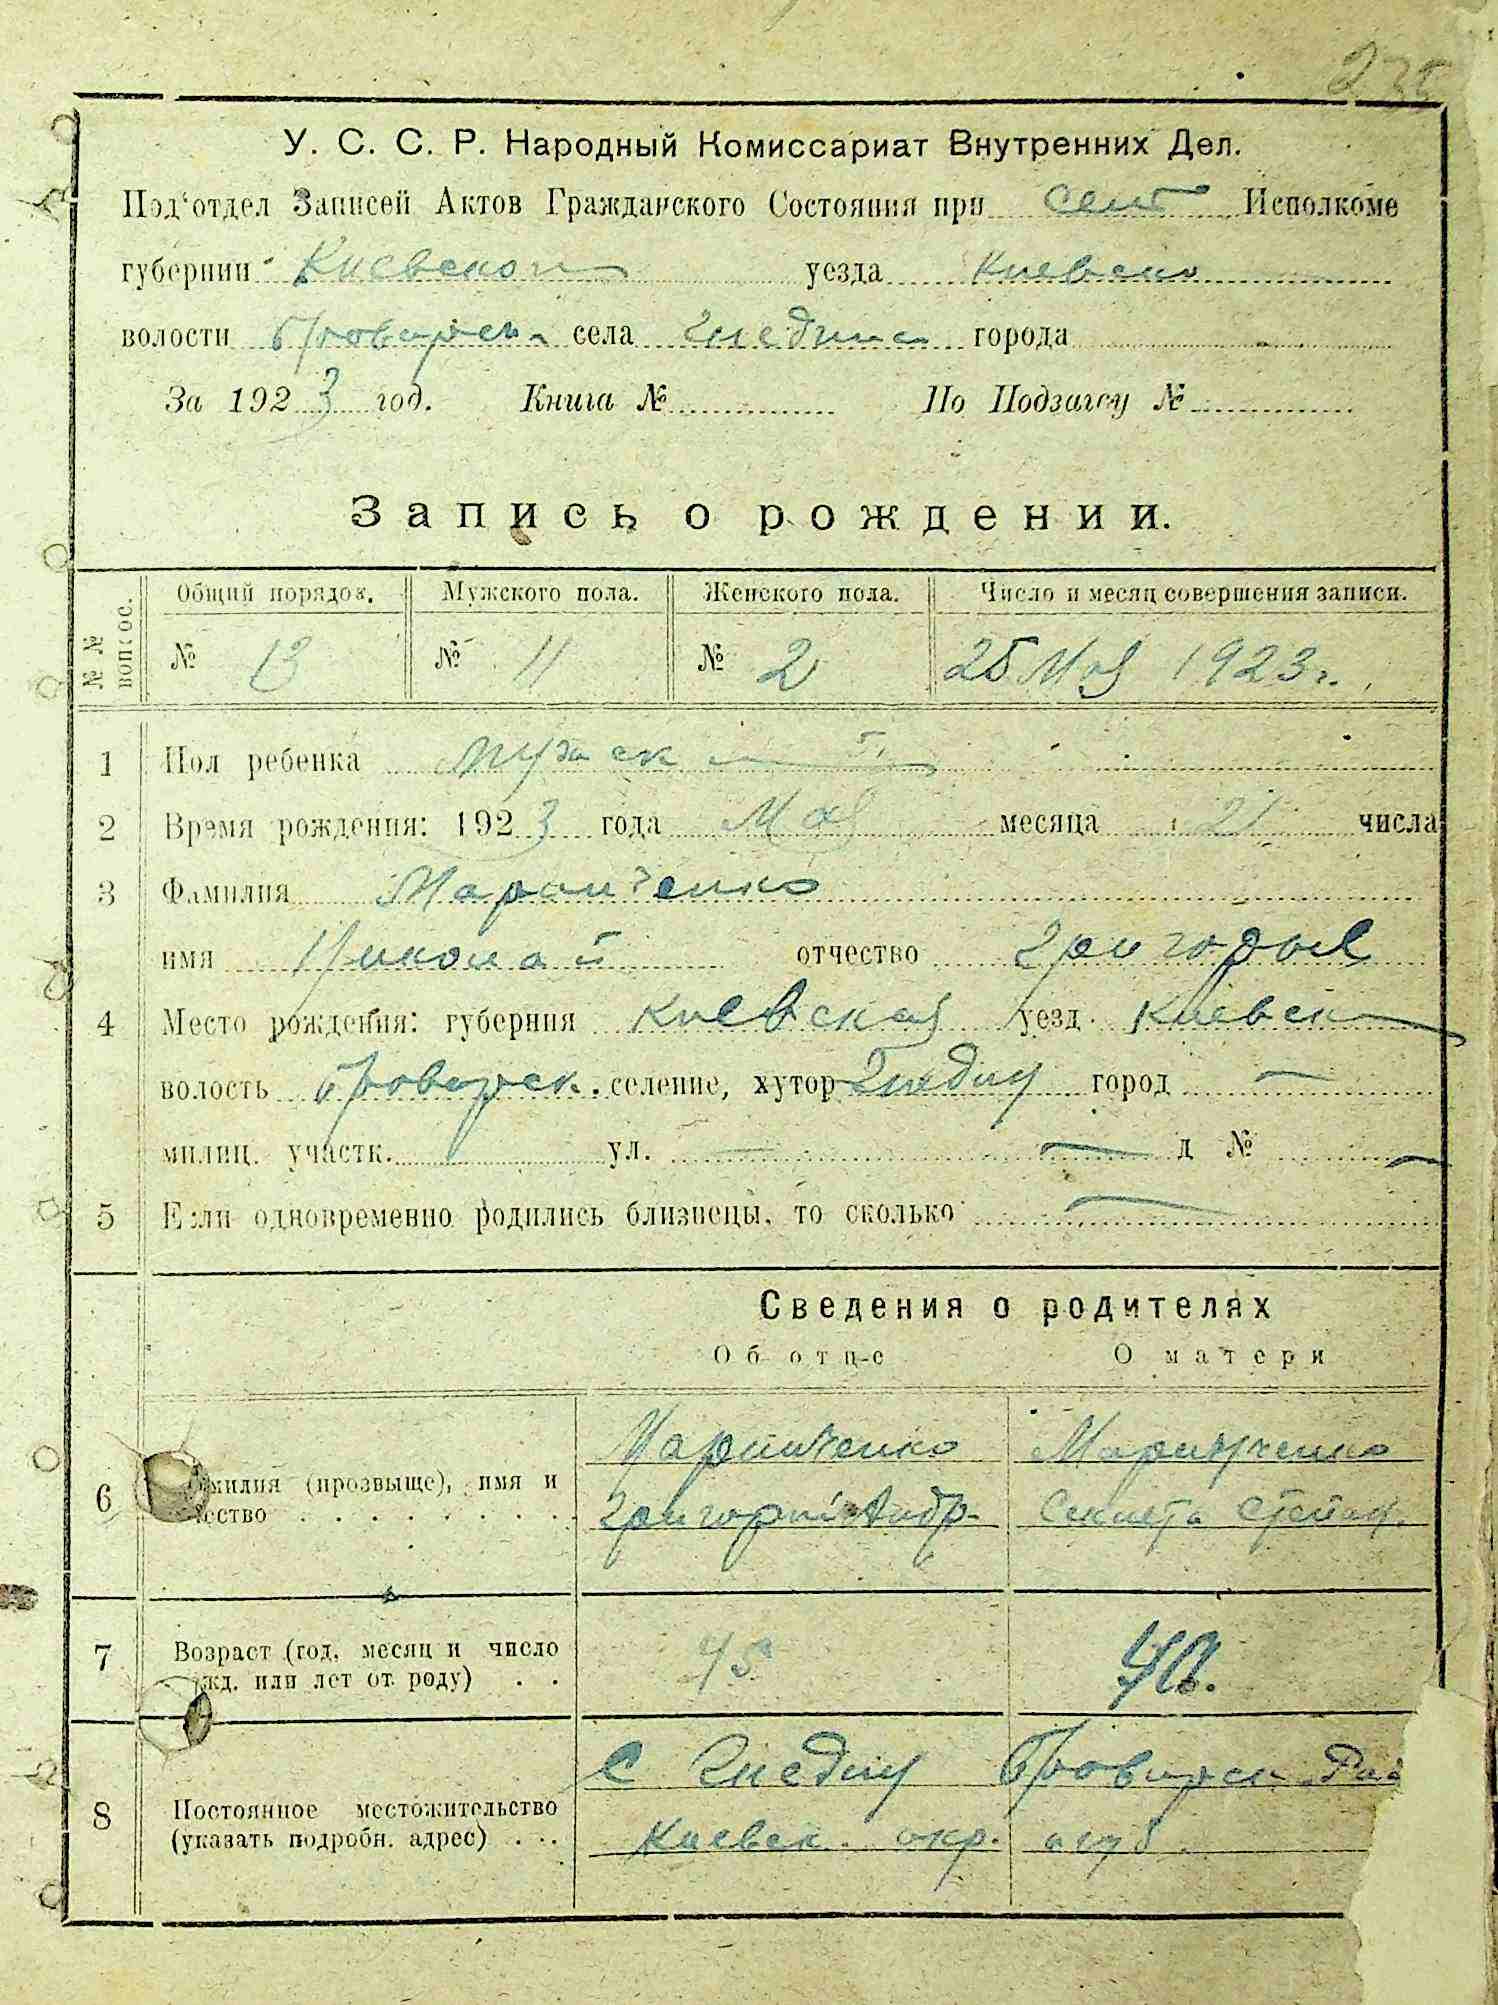 235
У. С. С. Р. Народный Комиссариат Внутренних Дел.
Под'отдел Записей Актов Гражданского Состояния при Исполкоме
губернии Киевской уезда Киевско
волости Броварск села Гнедына города
За 1923 год. Книга № По Подзагсу №
Запись о рождении.
№№ вопрос. Общий порядок. Мужского пола. Женского пола. Число и месяц совершения записи.
№ 13 № 11 № 2 25 Мая 1923 г.
1 Пол ребенка мужской
2 Время рождения: 1923 года Мая месяца 21 числа
3 Фамилия Маринченко
имя Николай отчество Григорьев
4 Место рождения: губерния Киевская уезд Киевск
волость Броварск. селение, хутор Гнедин город —
милиц. участк. ул. — — д № —
5 Если одновременно родились близнецы, то сколько —
Сведения о родителях
Об отце О матери
6 Фамилия (прозвыще), имя и отчество Маринченко Маринченко
Григорий Андр. Степан.
7 Возраст (год, месяц и число рожд. или лет от роду) 45 42.
8 Постоянное местожительство (указать подробн. адрес) С Гнедин Броварск. Рай
Киевск. окр. и губ.